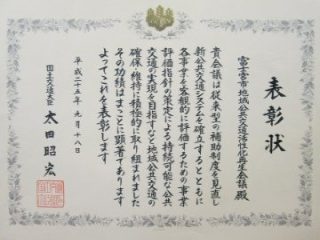 表彰状
富士宮市地域公共交通活性化再生会議 殿
貴会議は従来型の補助制度を見直し
新公共交通システムを確立するとともに
各事業を客観的に評価するための事業
評価指針の策定による持続可能な公共
交通の実現を目指すなど地域公共交通の
確保維持に積極的に取り組まれました
その功績はまことに顕著であります
よってこれを表彰します
平成二十五年 九月十八日
国土交通大臣 太田昭宏